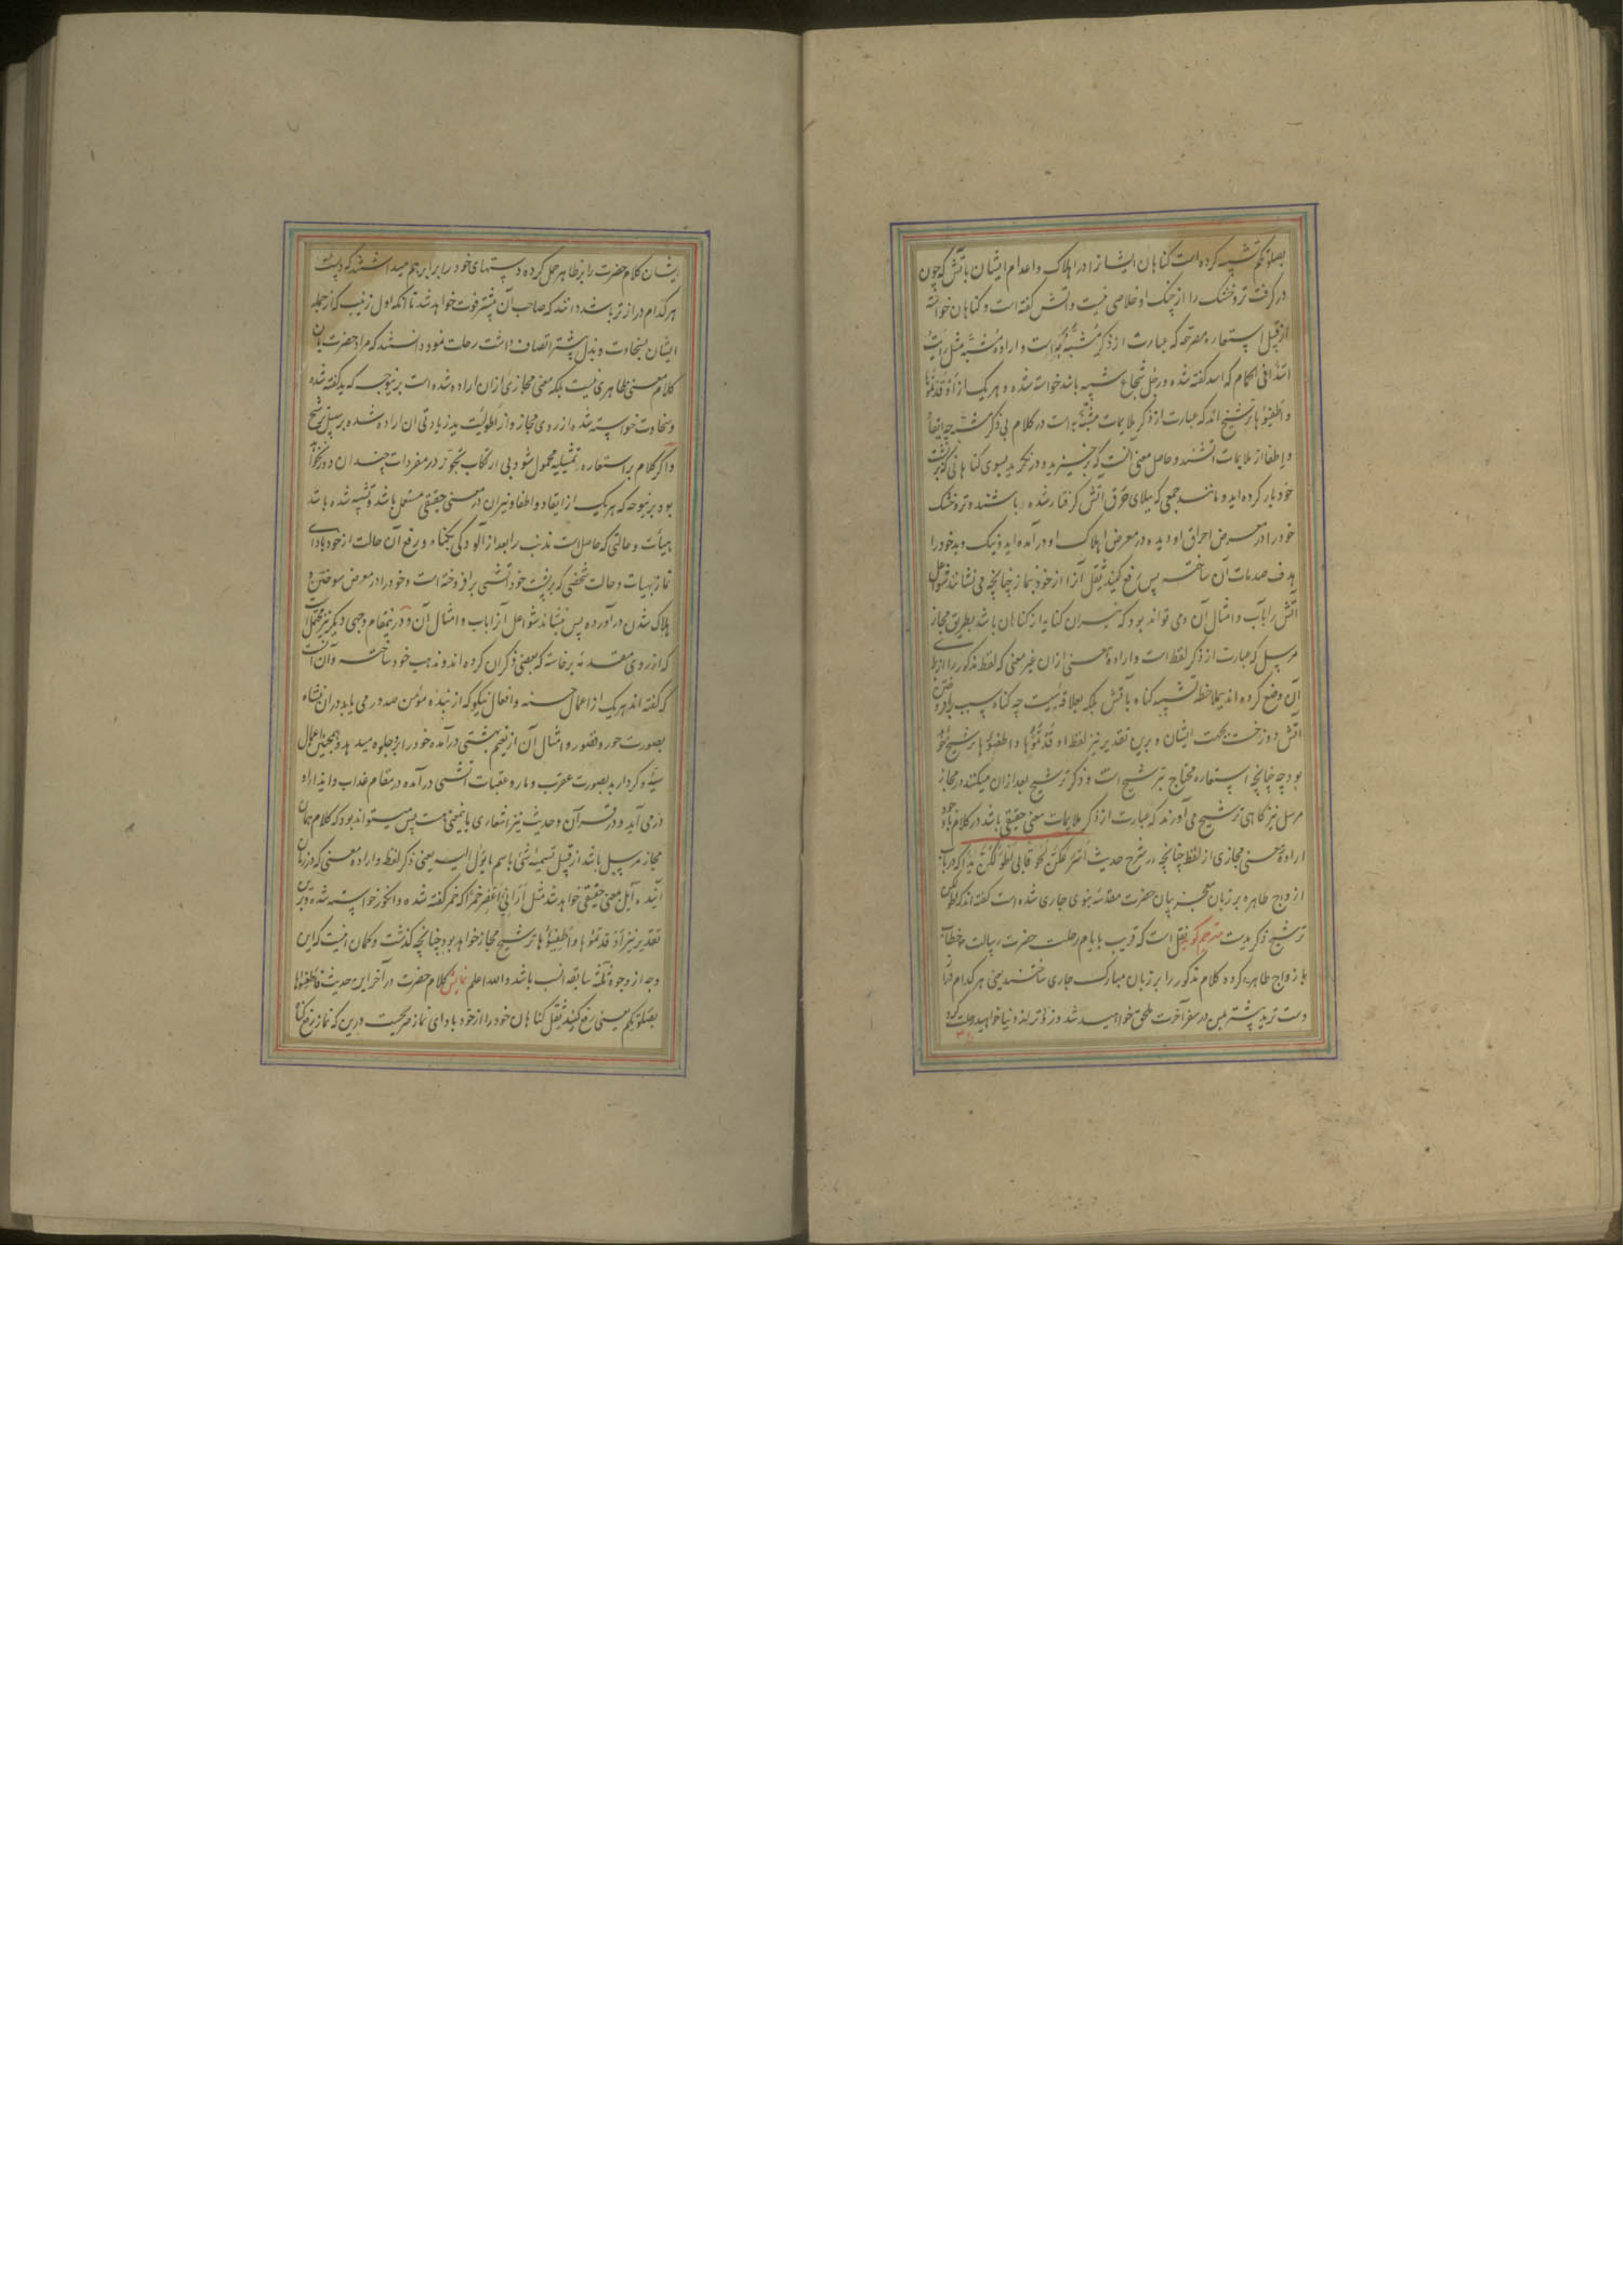 بصلوتکم تشبیه کرده است کناهان ایشانرا در اهلاک و اعدام ایشان باتش که چون
در کرفت تر و خشک را از چنک او خلاصی نیست و اتش کفته است و کناهان خواسته
از قبیل استعاره مصرحه که عبارت از ذکر مشبه به است و اراده مشبه مثل رایت
اسدا فی الحمام که اسد کفته شده و رجل شجاع شبیه باسد خواسته شده و هر یک از اوقدتموها
و اطفیوها ترشیح اند که عبارت از ذکر ملایمات مشبه به است در کلام بی ذکر مشبه چه ایقاد
و اطفا از ملایمات اتشند و حاصل معنی انست که برخیزید و در نکرید بسوی کناهانی که بر پشت
خود بار کرده اید و مانند جمعی که ببلای حرق اتش کرفتار شده باشند و تر و خشک
خود را در معرض احراق او دیده در معرض اهلاک او در آمده اید و نیک و بد خود را
هدف صدمات آن ساخته پس رفع کنید ثقل آنرا از خود بنماز چنانچه می نشانند شواعل
آتش را بآب و امثال آن و می تواند بود که نیران کنایه از کناهان باشد بطریق مجاز
مرسل که عبارت از ذکر لفظ است و اراده معنی ازان غیر معنی که لفظ مذکور را از برای
آن وضع کرده اند بملاحظه تشبیه کناه باتش بلکه بعلاقه سببیت چه کناه سبب افروختن
آتش دوزخست بجهت ایشان و برین تقدیر نیز لفظ اوقدتموها و اطفیوها ترشیح خواهد
بود چه چنانچه استعاره محتاج بترشیح است و ذکر ترشیح بعد ازان میکنند در مجاز
مرسل نیز کاهی ترشیح می آورند که عبارت از ذکر ملایمات معنی حقیقی باشد در کلام باوجود
اراده معنی مجازی از لفظ چنانچه در شرح حدیث اسرعکن لحوقا بی اطولکن یدا که در باب
ازواج طاهره بر زبان معجز بیان حضرت مقدسه نبوی جاری شده است کفته اند که اطولکن
ترشیح ذکر یدیت مترجم کوید نقل است که قریب بایام رحلت حضرت رسالت خطاب
بازواج طاهره کرده کلام مذکور را بر زبان مبارک جاری ساختند یعنی هر کدام دراز
دست ترید پیشتر بمن در سفر آخرت ملحق خواهید شد و زودتر از دنیا خواهید رحلت کرد
ایشان کلام حضرت را بر ظاهر حمل کرده دستهای خود را برابر هم میداشتند که دست
هر کدام درازتر باشد دانند که صاحب آن پیشتر فوت خواهد شد تا آنکه اول زینب که از جمله
ایشان بسخاوت و بذل پیشتر اتصاف داشت رحلت نمود دانستند که مراد حضرت بان
کلام معنی ظاهری نیست بلکه معنی مجازی ازان اراده شده است برینوجه که ید کفته شده
و سخاوت خواسته شده از روی مجاز و از اطولیت ید زیادتی ان اراده شده بر سبیل ترشیح
و اکر کلام بر استعاره تمثیلیه محمول شود بی ارتکاب تجوز در مفردات چندان دور نخواهد
بود برینوجه که هر یک از ایقاد و اطفا و نیران در معنی حقیقی مستعمل باشد و تشبیه شده باشد
هیأت و حالتی که حاصلست مذنب را بعد از آلودکی بکناه و رفع آن حالت از خود بادای
نماز بهیأت و حالت شخصی که بر پشت خود آتشی برافروخته است و خود را در معرض سوختن و
هلاک شدن در آورده و پس بنشاند شواعل آنرا باب و امثال آن و درینمقام وجهی دیکر نیز محتمل است
که از روی مقدمه برخاسته که بعضی ذکر ان کرده اند و مذهب خود ساخته و آن آنست
که کفته اند هر یک از اعمال حسنه و افعال نیکو که از بنده مؤمن صدور می یابد دران نشاه
بصورت حور و قصور و امثال آن از نعیم بهشتی در آمده خود را برو جلوه میدهد و همچنین اعمال
سیئه و کردار بد بصورت عقرب و مار و عقبات اتشی در آمده در مقام عذاب و ایذای او
در می آید و در قرآن و حدیث نیز اشعاری باینمعنی هست پس میتواند بود که کلام همان
مجاز مرسل باشد از قبیل تسمیه شئ باسم ما یؤل الیه یعنی ذکر لفظ و اراده معنی که در زمان
آینده آیل بمعنی حقیقی خواهد شد مثل ارانی اعصر خمرا که خمر کفته شده و انکور خواسته شده و برین
تقدیر نیز اوقدتموها و اطفیوها ترشیح مجاز خواهد بود چنانچه کذشت و کمان انیست که این
وجه از وجوه ثلثه سابقه انسب باشد والله اعلم نمایش کلام حضرت در آخر این حدیث فاطفیوها
بصلوتکم یعنی رفع کنید ثقل کناهان خود را از خود بادای نماز صریحیت درین که نماز رفع کناه